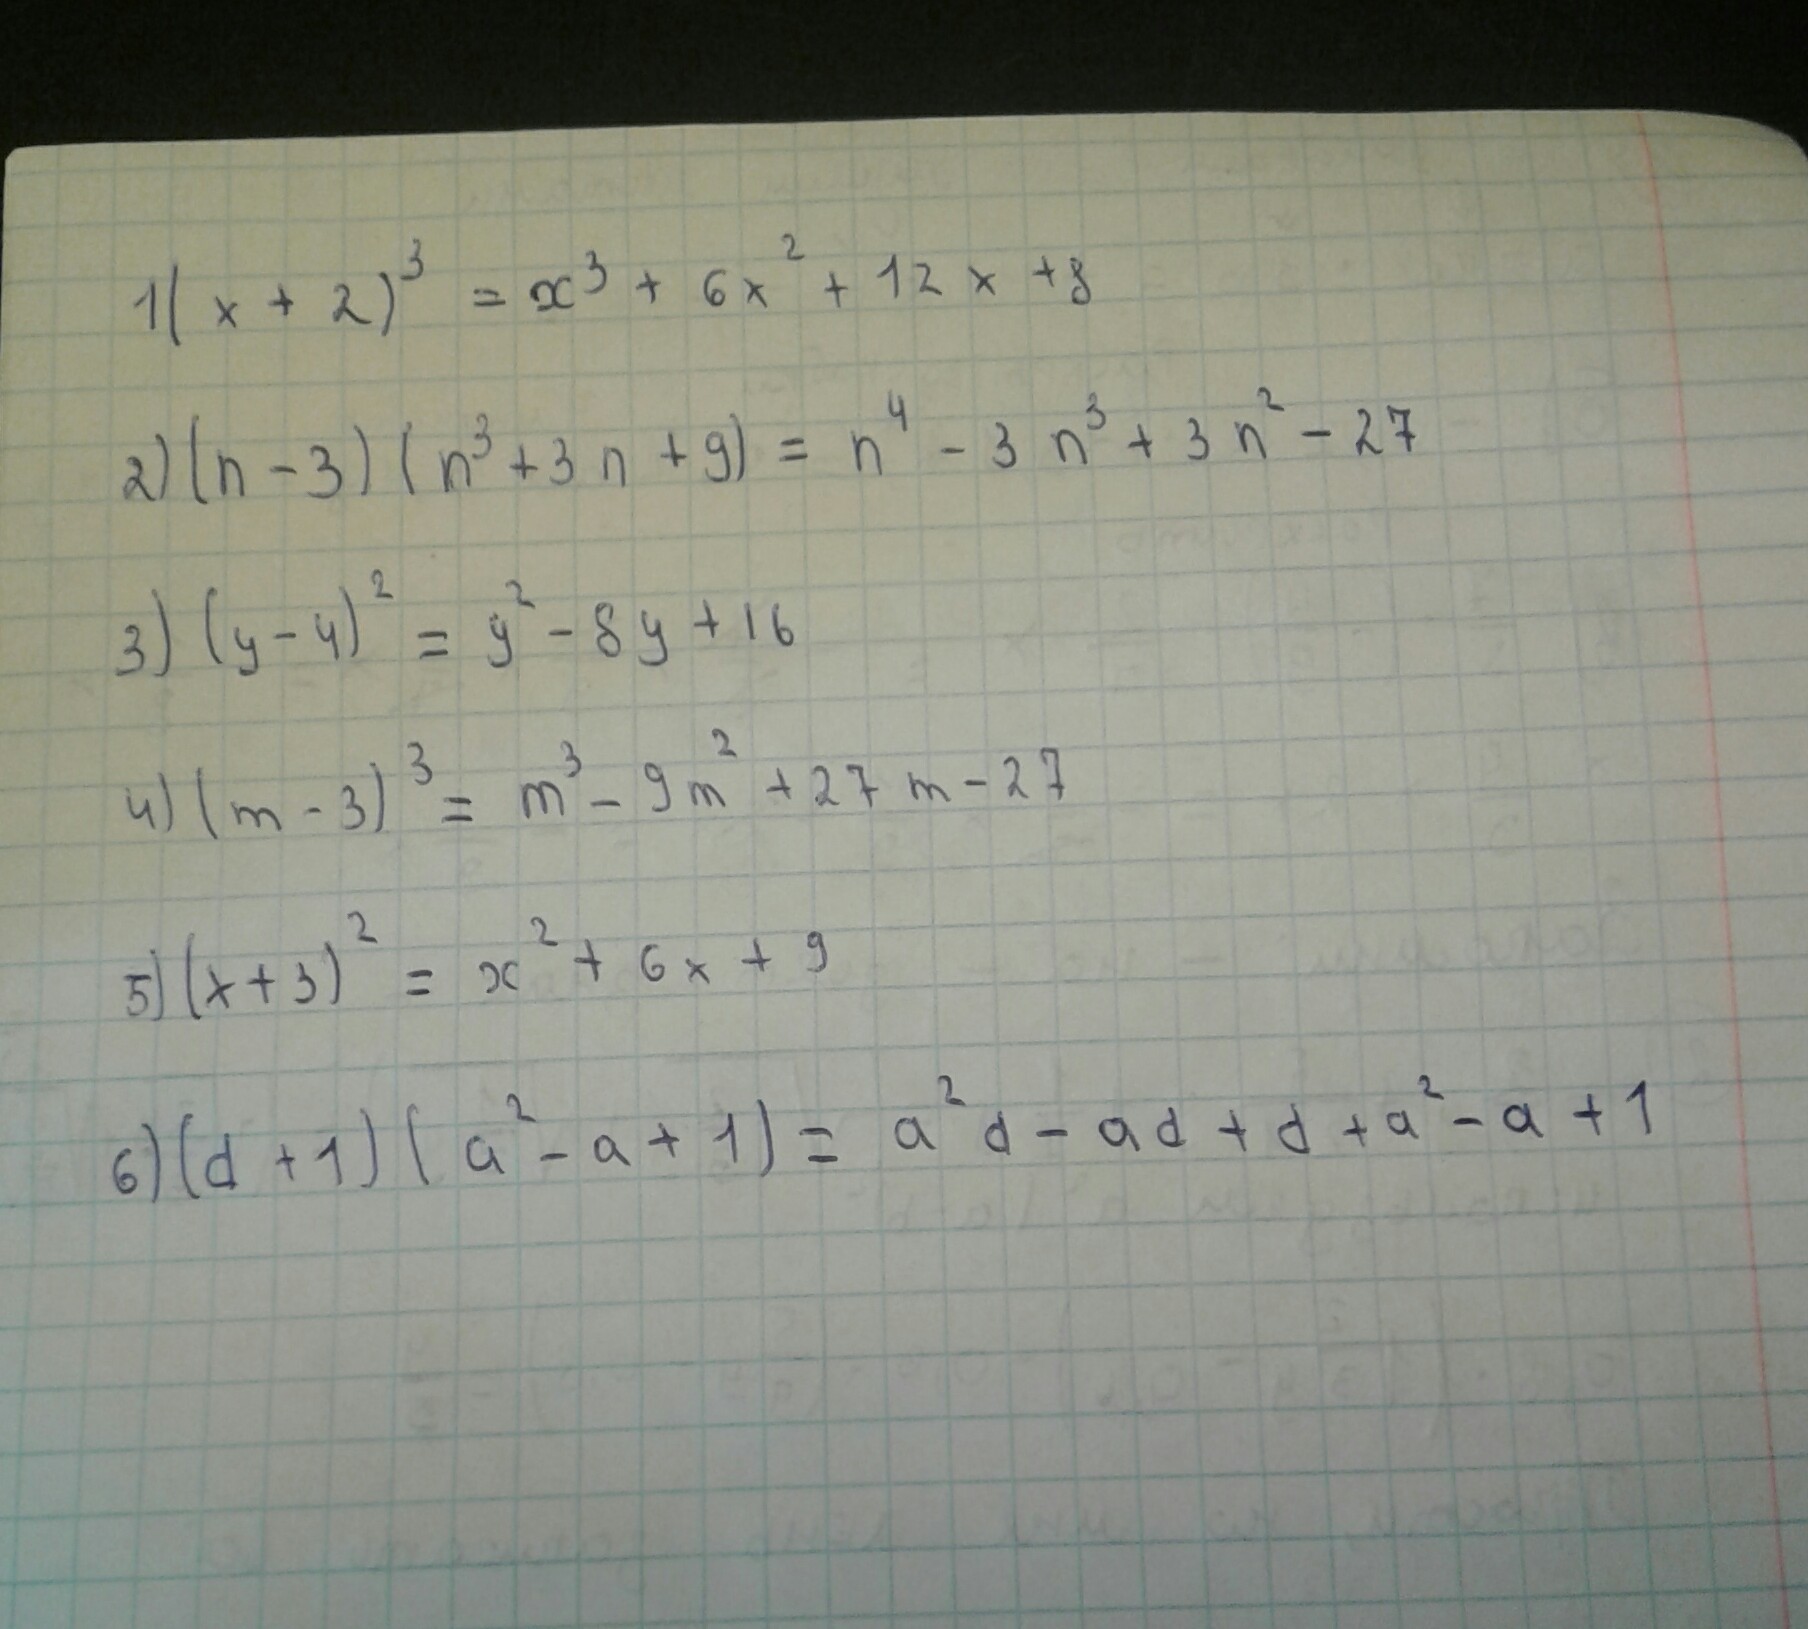 1(x + 2)³ = x³ + 6x² + 12x + 8
2) (n - 3) (n³ + 3n + 9) = n⁴ - 3n³ + 3n² - 27
3) (y - 4)² = y² - 8y + 16
4) (m - 3)³ = m³ - 9m² + 27m - 27
5) (x + 3)² = x² + 6x + 9
6) (d + 1) (a² - a + 1) = a²d - ad + d + a² - a + 1